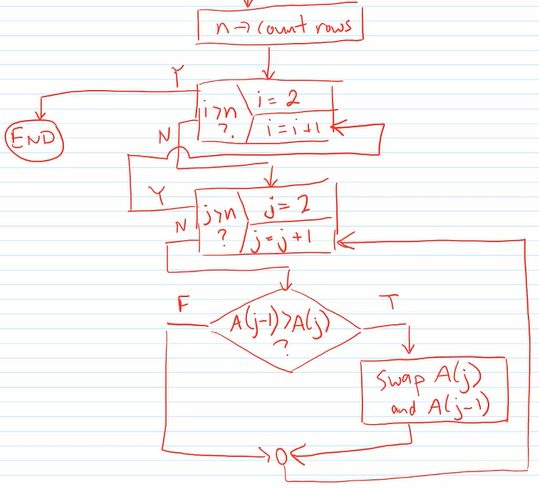 n→count rows
Y
i>n
?
i = 2
i = i+1
END
N
Y
j>n
?
j = 2
j = j+1
N
F
A(j-1)>A(j)
?
T
Swap A(j)
and A(j-1)